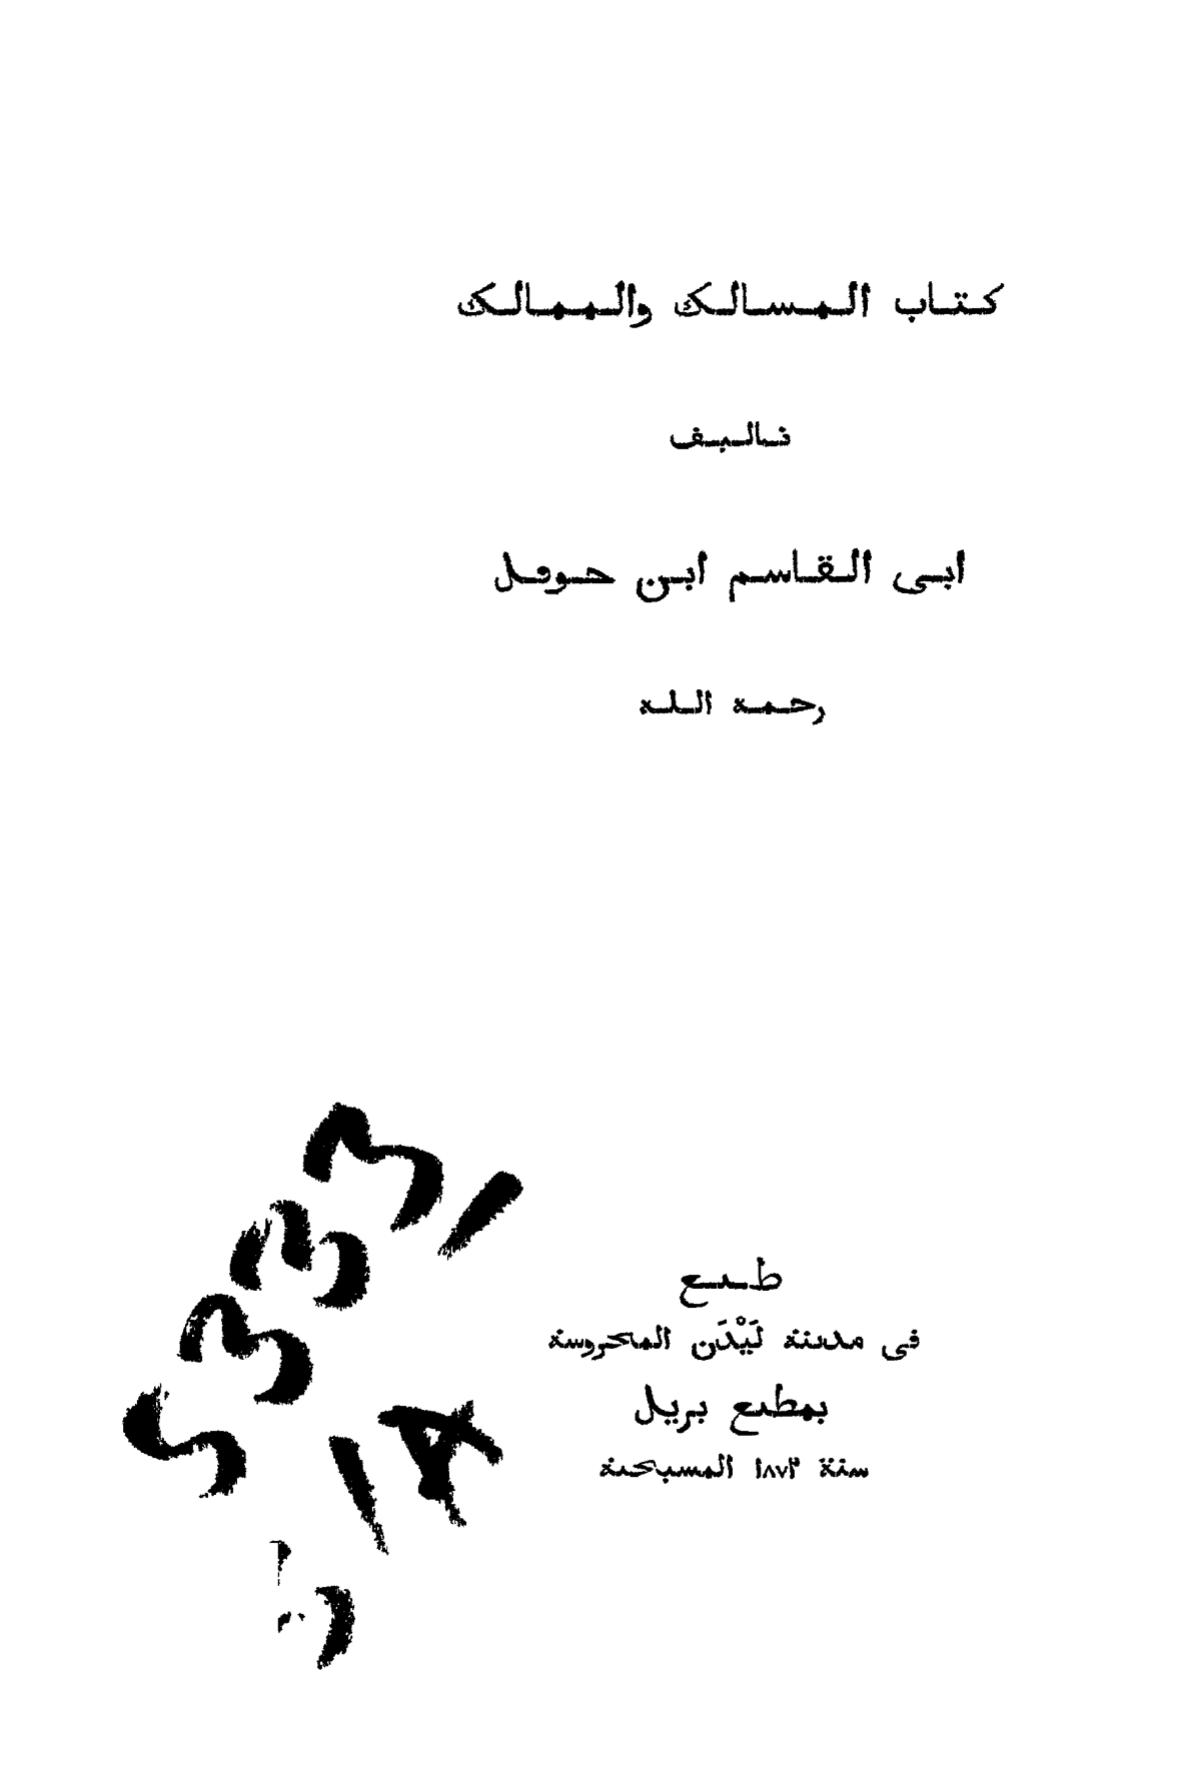 كتاب المسالك والممالك
تاليف
ابى القاسم ابن حوقل
رحمة الله
طبع
فى مدينة لَيْدَن المحروسة
بمطبع بريل
سنة ١٨٧٢ المسيحية